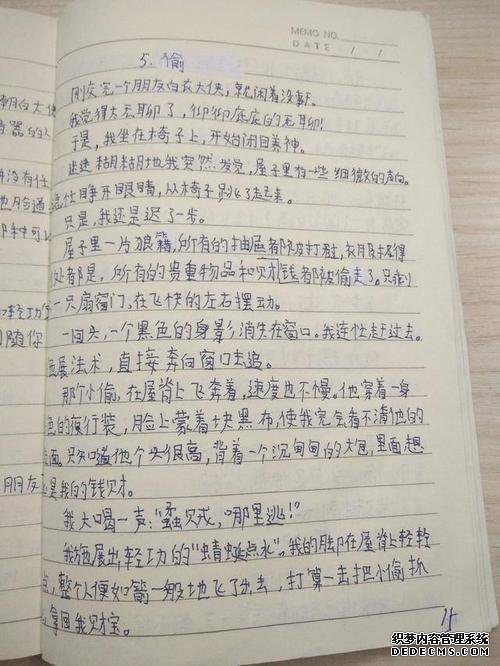 MEMO NO.
DATE / /
5. 偷
刚交完一个朋友白衣大侠,就闲着没事。
我觉得太无聊了,彻彻底底的无聊!
于是,我坐在椅子上,开始闭目养神。
迷迷糊糊地我突然发觉,屋子里有一些细微的声响。
急忙睁开眼睛,从椅子
只是,我还是迟了一步。
屋子里一片狼藉,所有的抽屉都被打开,衣服
处都是,所有的贵重物品和财钱都被偷走了。只
一只扇窗门,在飞快的左右摆动。
一回头,一个黑色的身影消失在窗口。我连忙赶过去。
施展法术,直接奔向窗口去追。
那个小偷,在屋脊上飞奔着,速度也不慢。他穿着一身
色的夜行装,脸上蒙着一块黑布,使我完全看不清他的
面,只知道他个头很高,背着一个沉甸甸的大包,里面想
是我的钱财。
我大喝一声:“蟊贼,哪里逃!”
我施展出轻功的“蜻蜓点水”,我的脚在屋脊上轻轻
点,整个人便如箭一般地飞了出去,打算一击把小偷抓
拿回我财宝。
15
朝白大侠
器的人
没有任
随你
朋友
织梦内容管理系统
DEDECMS.COM